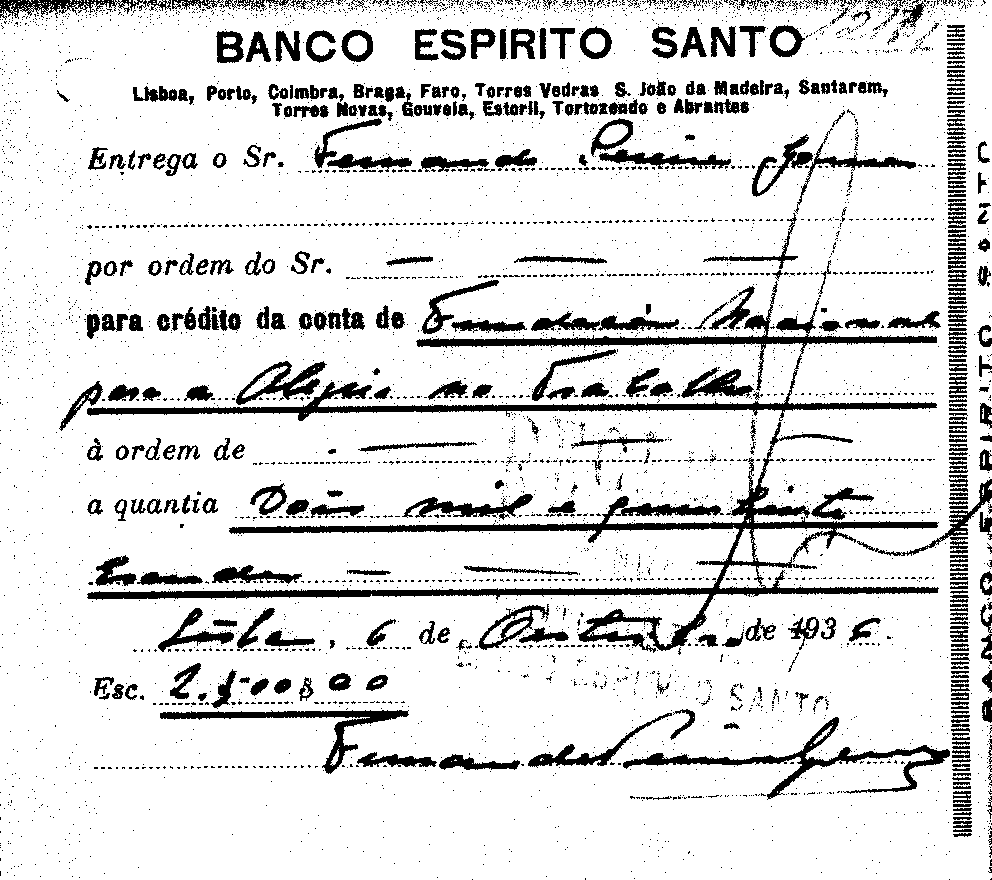 BANCO ESPIRITO SANTO
Lisboa, Porto, Coimbra, Braga, Faro, Torres Vedras S. João da Madeira, Santarem,
Torres Novas, Gouveia, Estoril, Tortozendo e Abrantes
Entrega o Sr. Fernando Pereira Gomes
por ordem do Sr. — — —
para crédito da conta de Fundação Nacional
para a Alegria no Trabalho
à ordem de — — —
a quantia Dois mil e quinhentos
Escudos — — —
Lisboa, 6 de Outubro de 1936.
Esc. 2.500$00
SANTO
Fernando Pereira Gomes
BANCO ESPIRITO SANTO